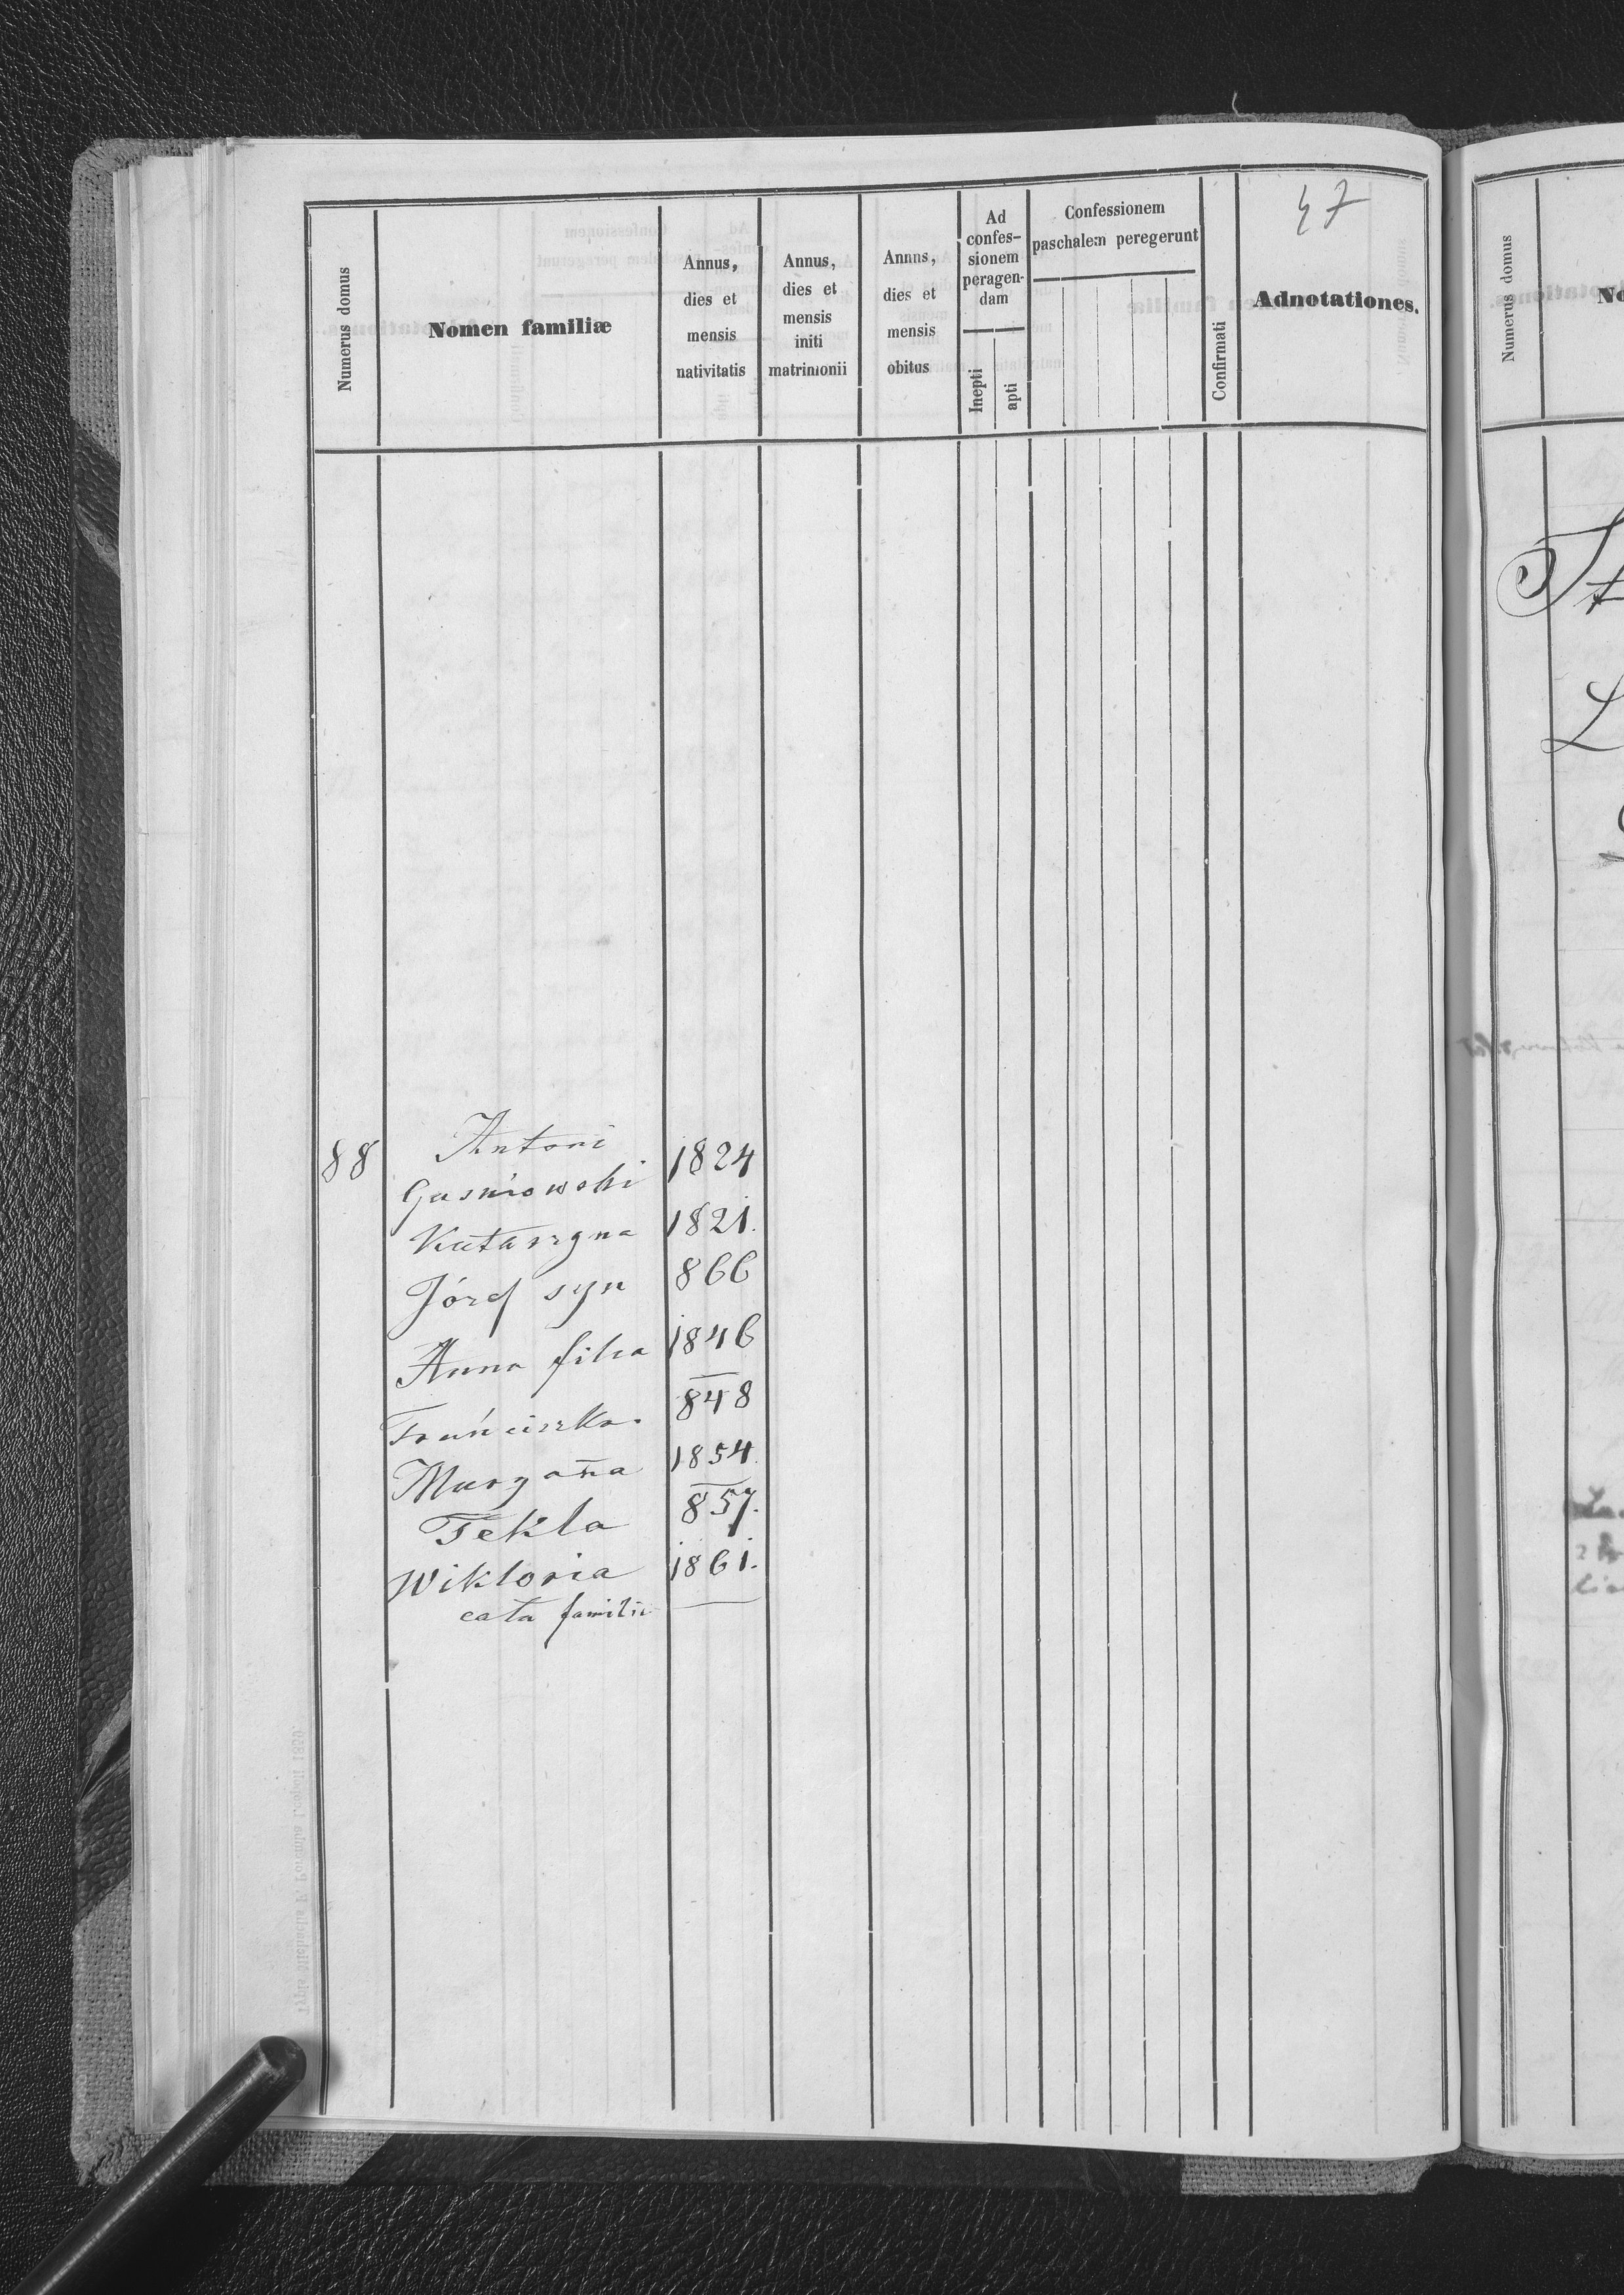 47
Numerus domus
Nomen familiæ
Annus,
dies et
mensis
nativitatis
Annus,
dies et
mensis
initi
matrimonii
Annus,
dies et
mensis
obitus
Ad
confes-
sionem
peragen-
dam
Inepti
apti
Confessionem
paschalem peregerunt
Confirmati
Adnotationes.
88 Antoni 1824
Gusniowski
Katarzyna 1821.
Józef syn 866
Anna filia 1846
Frańciszka. 848
Maryanna 1854.
Tekla 857.
Wiktoria 1861.
cała familia
Numerus domus